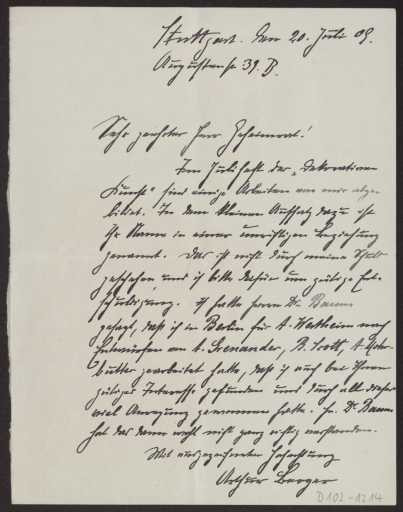 Stuttgart. den 20. Juli 09.
Augustenstr 39. B.
Sehr geehrter Herr Geheimrat!
Im Juliheft der „Dekorativen
Kunst“ sind einige Arbeiten von mir abge-
bildet. In dem kleinen Aufsatz dazu ist
Ihr Name in etwas unrichtiger Beziehung
genannt. Das ist nicht durch meine Schuld
geschehen und ich bitte dafür um gütige Ent-
schuldigung. Ich hatte Herrn Dr. Baum
gesagt, daß ich in Berlin für A. Wertheim nach
Entwürfen von A. Grenander, B. Scott, A. Mohr-
butter gearbeitet hatte, daß ich auch bei Ihnen
gütiges Interesse gefunden und durch all dieses
viel Anregung gewonnen hatte. H. Dr. Baum
hat das dann wohl nicht ganz richtig verstanden.
Mit ausgezeichneter Hochachtung
Arthur Berger
D102-1214